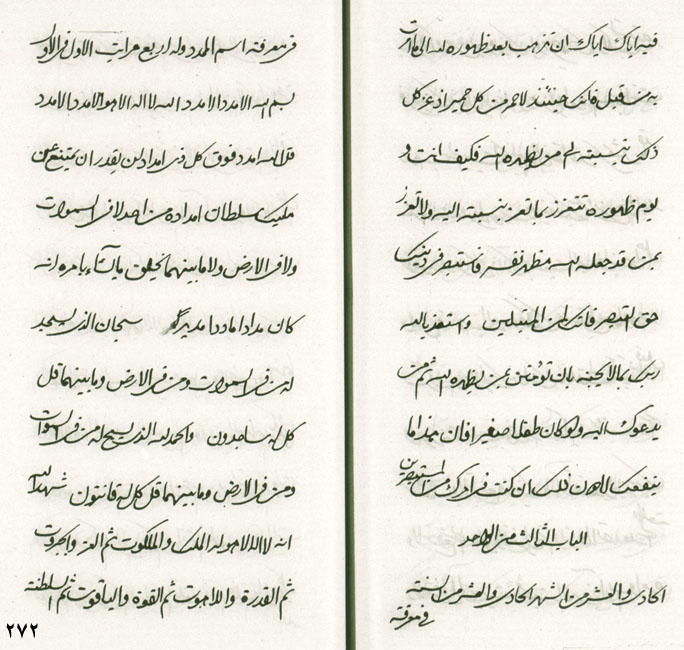 فیه ایاک ایاک ان تذهب بعد ظهوره الی ما امرت
به من قبل فانک حینئذ لاحمر من کل حمیر اذ عز کل
ذلک بنسبته الی من یظهره الله فکیف انت و
یوم ظهوره تتعزز بما تعزز بنسبته الیه ولا تعزز
بمن قد جعله الله مظهر نفسه فاستبصر فی دینک
حق التبصر فانک لمن المبتلین واستعذ بالله
ربک بان تؤمنن بمن یظهره الله ثم من
یدعوک الیه ولو کان طفلا صغیرا فان هذا ما
ینفعک لا دون ذلک ان کنت فی امرک من المستبصرین
الباب الثالث من الواحد
الحادی والعشر من الشهر الحادی والعشر من السنة
فی معرفة
فی معرفة اسم الممدد وله اربع مراتب الاول فی الاول
بسم الله الامدد الامدد الله لا اله الا هو الامدد الامدد
قل الله امدد فوق کل ذی امداد لن یقدر ان یمتنع عن
ملیک سلطان امداده من احد لا فی السموات
ولا فی الارض ولا ما بینهما یخلق ما یشاء بامره انه
کان مدادا ماددا مدیدا سبحان الذی یسجد
له من فی السموات ومن فی الارض وما بینهما قل
کل له ساجدون والحمد لله الذی یسبح له من فی السموات
ومن فی الارض وما بینهما قل کل له قانتون شهد الله
انه لا اله الا هو له الملک والملکوت ثم العز والجبروت
ثم القدرة واللاهوت ثم القوة والیاقوت ثم السلطنة
۲۷۲